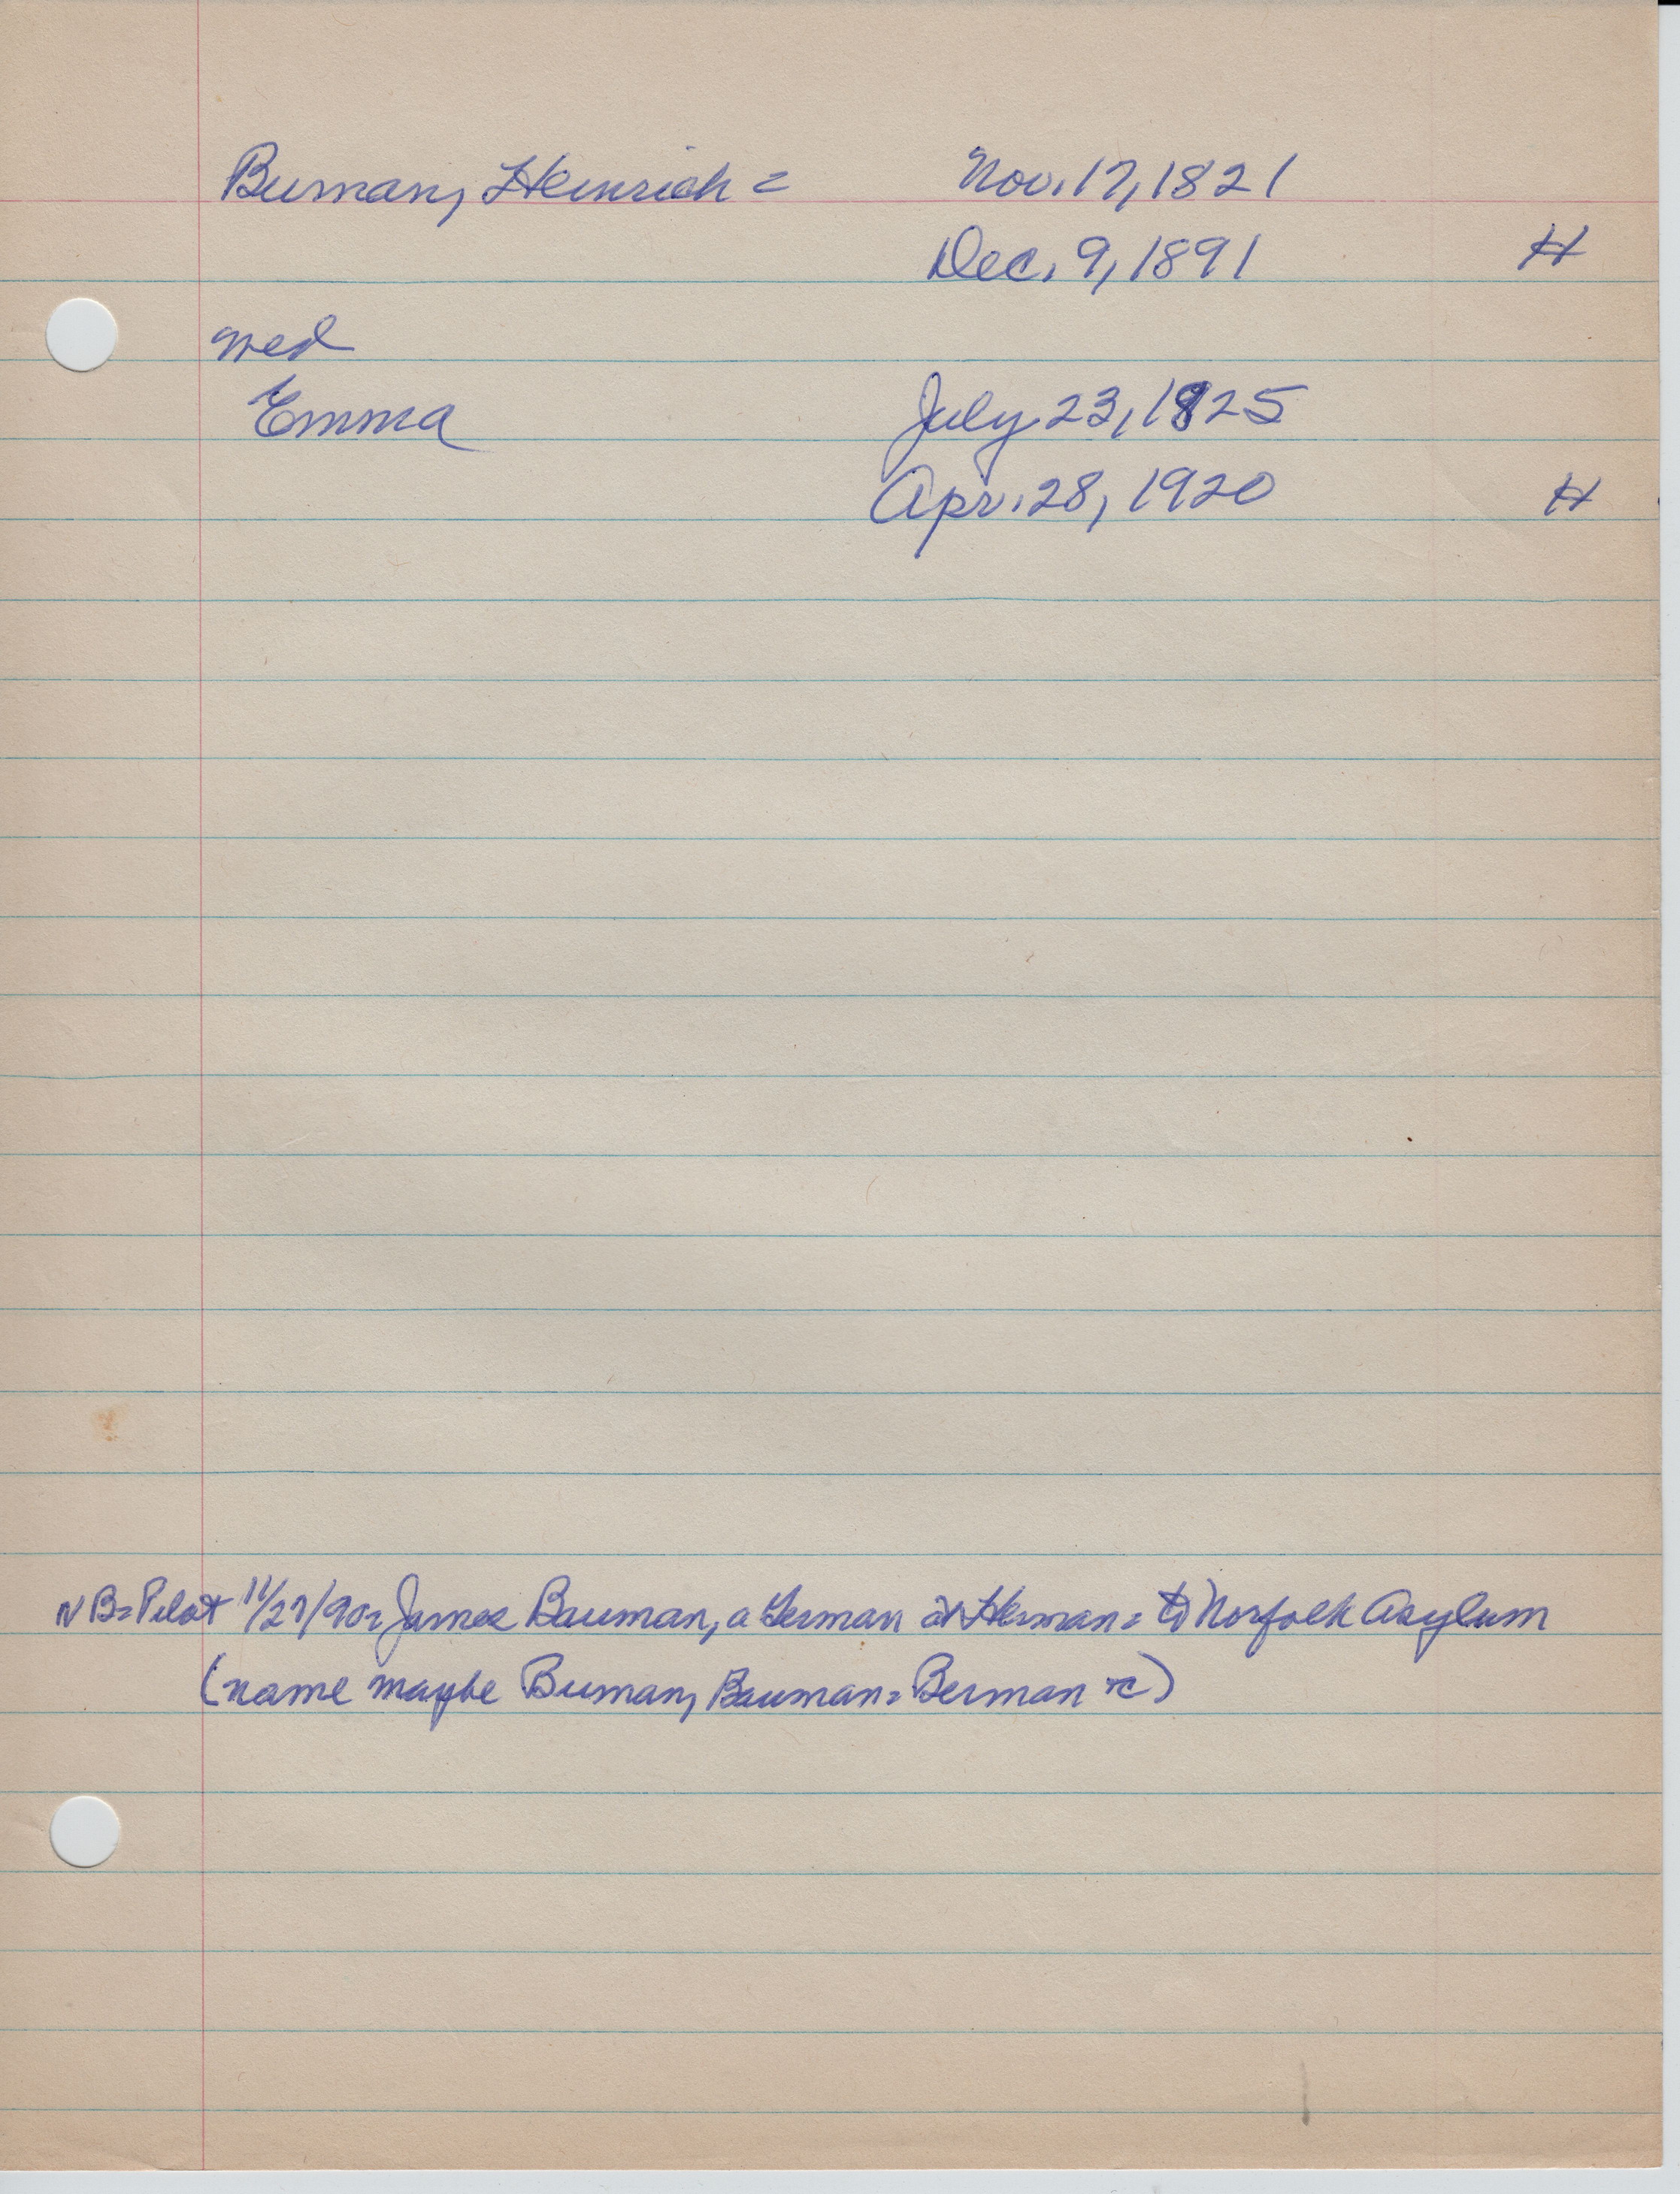 Buman, Heinrich = Nov. 17, 1821
Dec. 9, 1891 H
wed
Emma July 23, 1825
Apr. 28, 1920 H
NB = Pilot 11/27/90 = James Bauman, a German at Herman = to Norfolk Asylum
(name maybe Buman, Bauman = Berman &c)